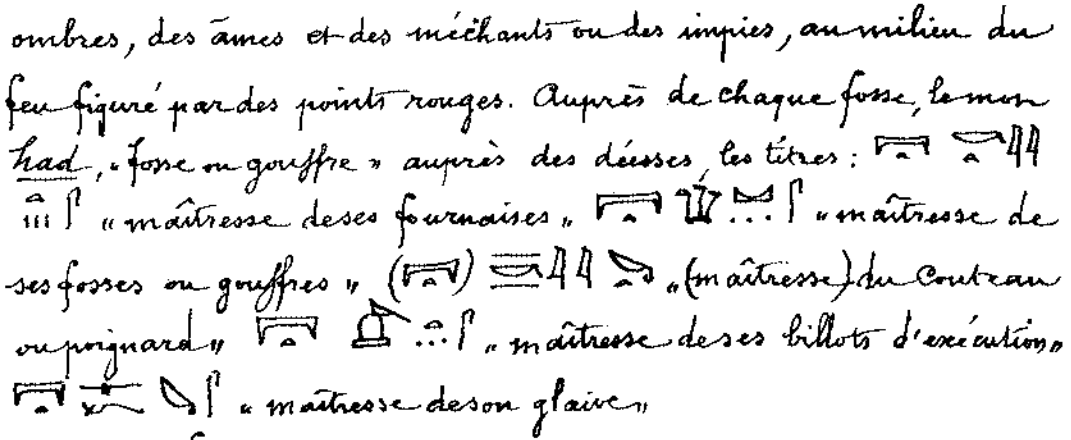 ombres, des âmes et des méchants ou des impies, au milieu du
feu figuré par des points rouges. Auprès de chaque fosse, le mon
had, "fosse ou gouffre" auprès des déesses, les titres :
"maîtresse de ses fournaises" "maîtresse de
ses fosses ou gouffres" ( ) "(maîtresse) du Couteau
ou poignard" "maîtresse de ses billots d'exécution"
"maîtresse de son glaive"